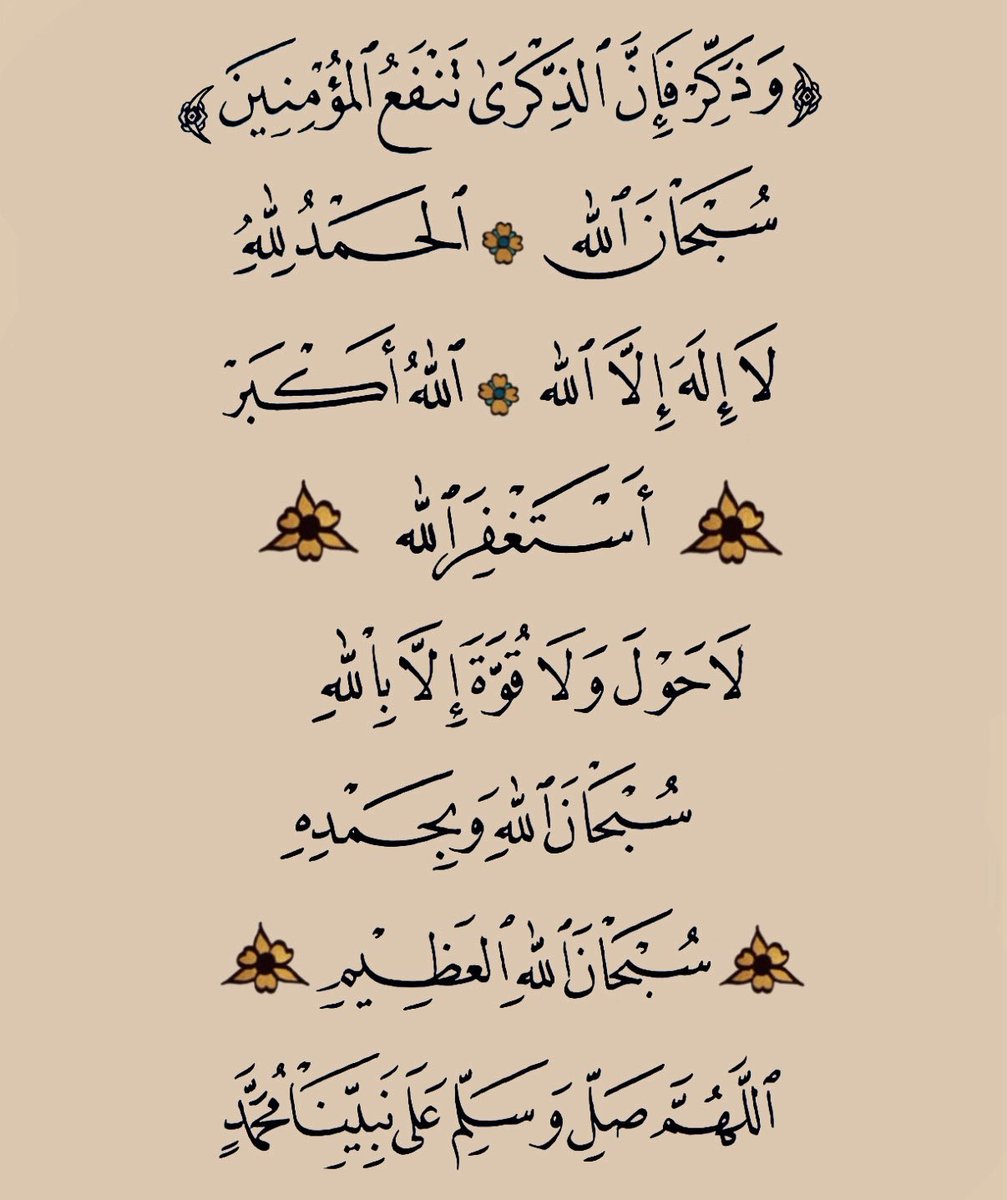 ﴿وَذَكِّرْ فَإِنَّ ٱلذِّكْرَىٰ تَنْفَعُ ٱلْمُؤْمِنِينَ﴾
سُبْحَانَ ٱللّٰه ٱلْحَمْدُ لِلّٰهِ
لَا إِلَهَ إِلَّا ٱللّٰه ٱللّٰهُ أَكْبَرْ
أَسْتَغْفِرَ ٱللّٰه
لَا حَوْلَ وَلَا قُوَّةَ إِلَّا بِٱللّٰهِ
سُبْحَانَ ٱللّٰهِ وَبِحَمْدِهِ
سُبْحَانَ ٱللّٰهِ ٱلْعَظِيْمِ
ٱللَّهُمَّ صَلِّ وَسَلِّم عَلَىٰ نَبِيِّنَا مُحَمَّدٍ